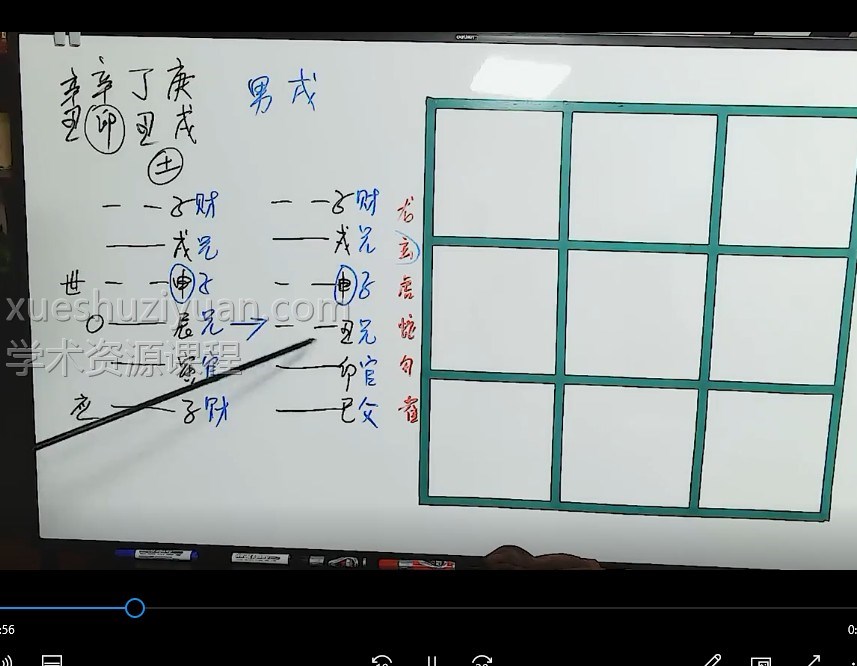 辛 辛 丁 庚 男 戌
丑 卯 丑 戌
土
子财 子财 龙
戌兄 戌兄 玄
世 申子 申子 虎
xueshuziyuan.com
O 辰兄 → 丑兄 蛇
学术资源课程
寅官 卯官 勾
应 子财 巳父 雀
:56
0: